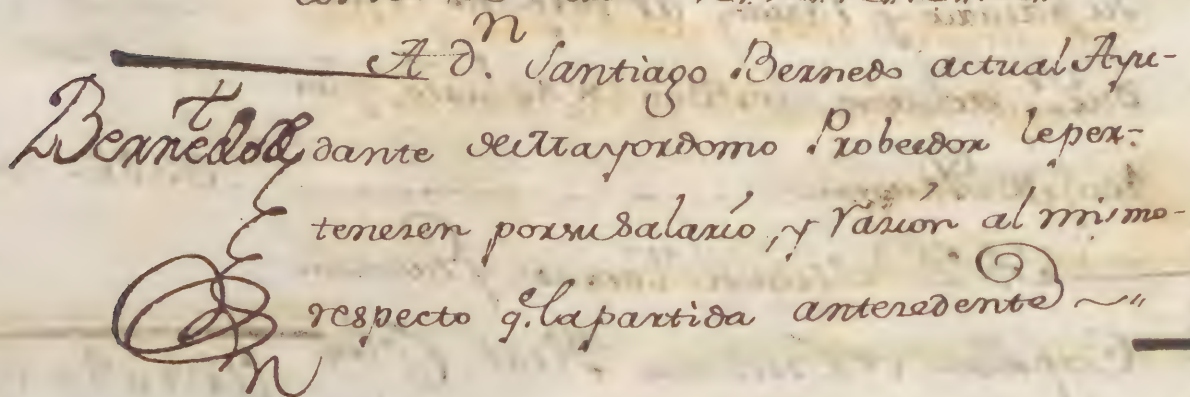 A d.n Santiago Bernedo actual Ayu-
dante de Mayordomo Probeedor leper-
tenezen porsu Salario, y Razión al mismo
respecto q.e la partida antezedente
Bernedo